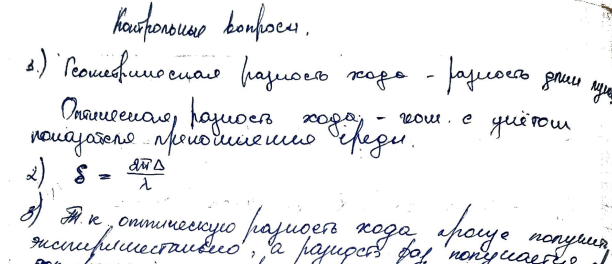 Контрольные вопросы.
1.) Геометрическая разность хода - разность длин
Оптическая разность хода - с учётом
показателя преломления среды.
2) δ = 2πΔ/λ
3) Т.к. оптическую разность хода проще
экспериментально, а разность фаз получается